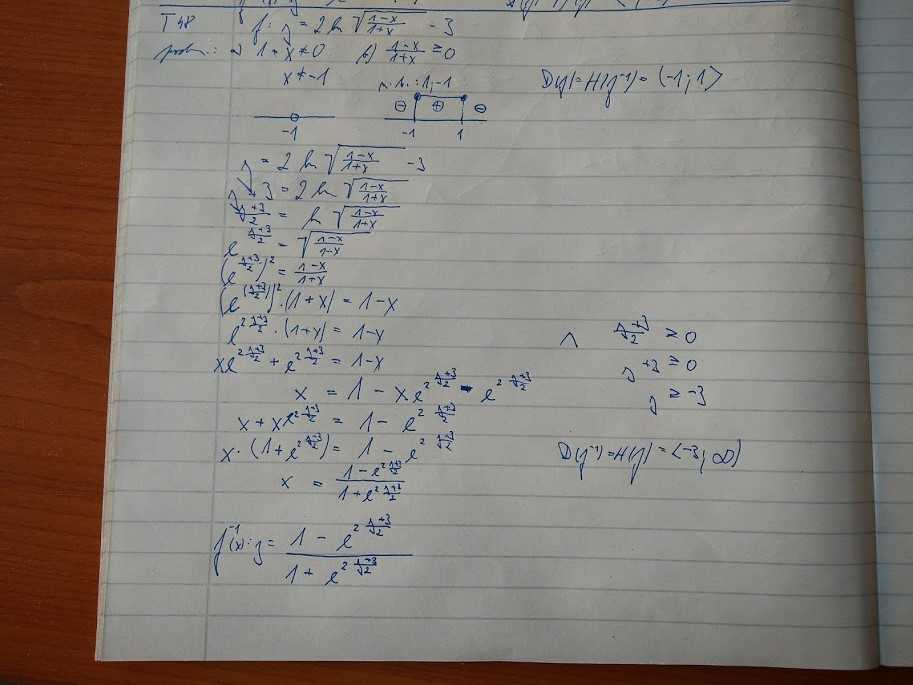 T 48 f: y = 2 ln √((1-x)/(1+x)) - 3
1+x ≠ 0 b) (1-x)/(1+x) ≥ 0
x ≠ -1
n.b.: 1, -1 D(f) = H(f⁻¹) = (-1; 1⟩
⊖ ⊕ ⊖
-1 -1 1
y = 2 ln √((1-x)/(1+x)) - 3
y + 3 = 2 ln √((1-x)/(1+x))
(y+3)/2 = ln √((1-x)/(1+x))
e^((y+3)/2) = √((1-x)/(1-x))
(e^((y+3)/2))² = (1-x)/(1+x)
(e^((y+3)/2))² · (1+x) = 1-x
e^(2 (y+3)/2) · (1+x) = 1-x
∧ (y+3)/2 ≥ 0
xe^(2 (y+3)/2) + e^(2 (y+3)/2) = 1-x
y+3 ≥ 0
x = 1 - xe^(2 (y+3)/2) - e^(2 (y+3)/2)
y ≥ -3
x + xe^(2 (y+3)/2) = 1 - e^(2 (y+3)/2)
x · (1 + e^(2 (y+3)/2)) = 1 - e^(2 (y+3)/2)
D(f⁻¹) = H(f) = ⟨-3; ∞)
x = (1 - e^(2 (y+3)/2))/(1 + e^(2 (y+3)/2))
f⁻¹(x): y = (1 - e^(2 (x+3)/2))/(1 + e^(2 (x+3)/2))